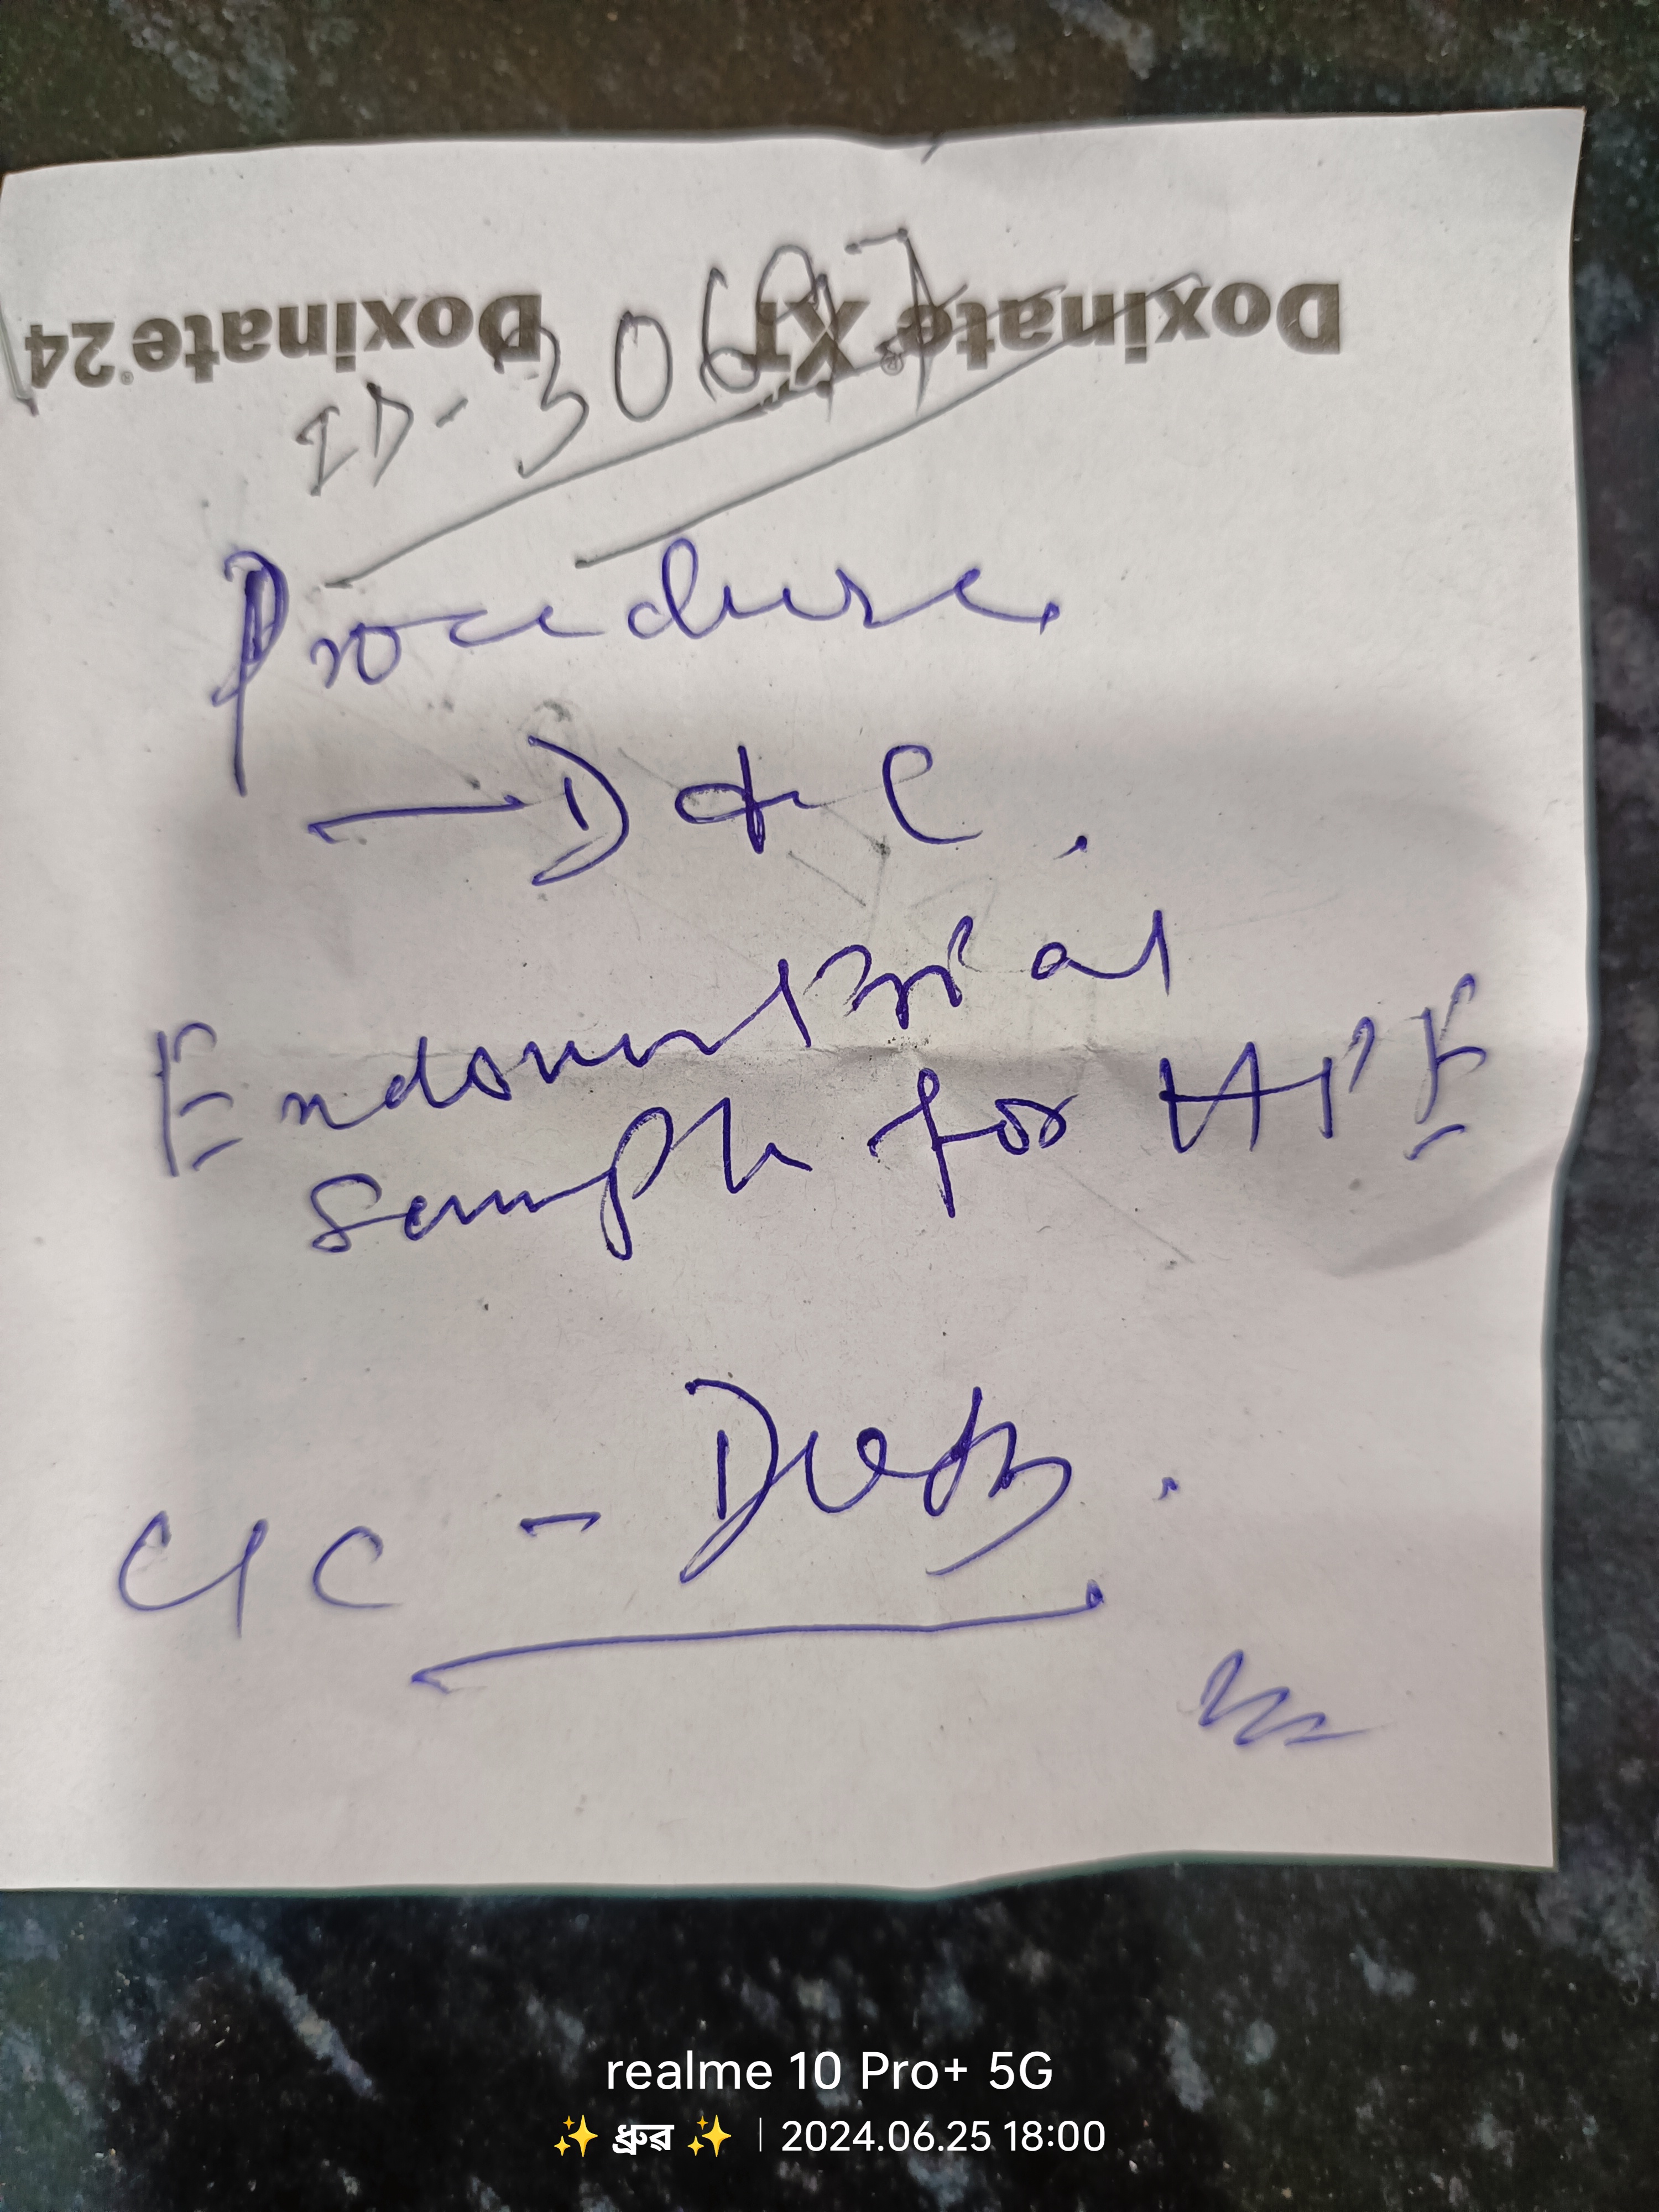 Doxinate 24 Doxinate XT
ID-30697
Procedure.
→ D & C.
Endometrial
Sample for HPE
C/C -
realme 10 Pro+ 5G
✨ ধ্রুৱ ✨ | 2024.06.25 18:00